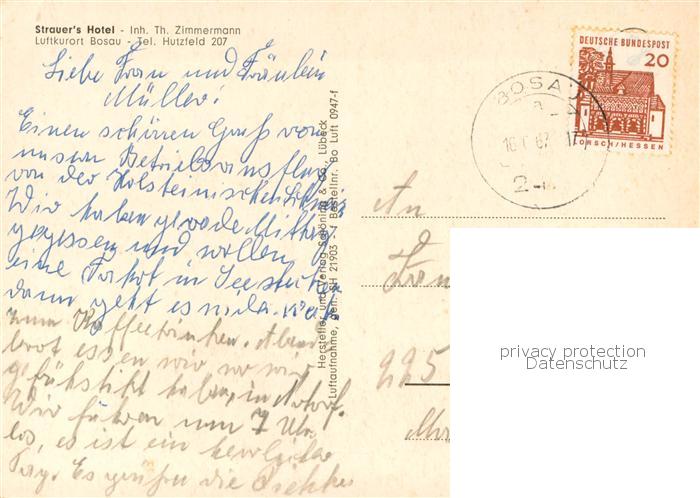 Strauer's Hotel - Inh. Th. Zimmermann
Luftkurort Bosau - Tel. Hutzfeld 207
Liebe Frau und Fräulein
Müller!
Einen schönen Gruß vom
unsern Betriebsausflug
von der Holsteinischen Schweiz
Wir haben gerade Mittag
gegessen und wollen
eine Fahrt in See
dann geht es
zum Kaffeetrinken. Abend
brot essen wir, wo wir
gefrühstückt haben, in
Wir fuhren um 7 Uhr
los, es ist ein herrlicher
Tag. Es grüßen die
Hersteller und Verlag Schöning & Co., Lübeck
Luftaufnahme, gen. SH 21903 Bestellnr. Bo Luft 0947-f
DEUTSCHE BUNDESPOST
20
LORSCH/HESSEN
BOSAU
a
2
An
Frau
225
privacy protection
Datenschutz